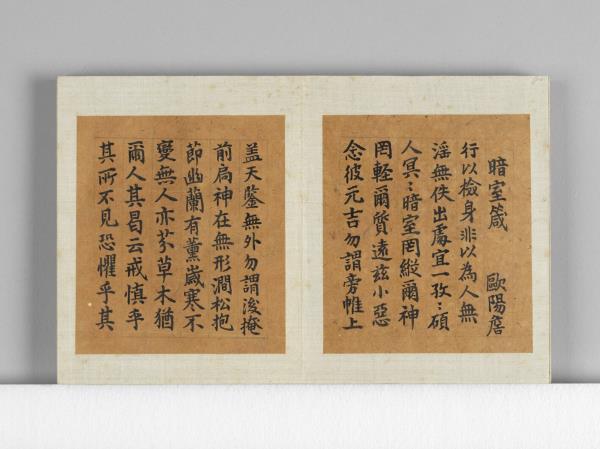 暗室箴 歐陽詹
行以檢身非以為人無
淫無佚出處宜一孜:碩
人冥:暗室罔縱爾神
罔輕爾質遠茲小惡
念彼元吉勿謂旁帷上
盖天鑒無外勿謂後掩
前扃神在無形澗松抱
節幽蘭有薰歲寒不
變無人亦芬草木猶
爾人其曷云戒慎乎
其所不見恐懼乎其